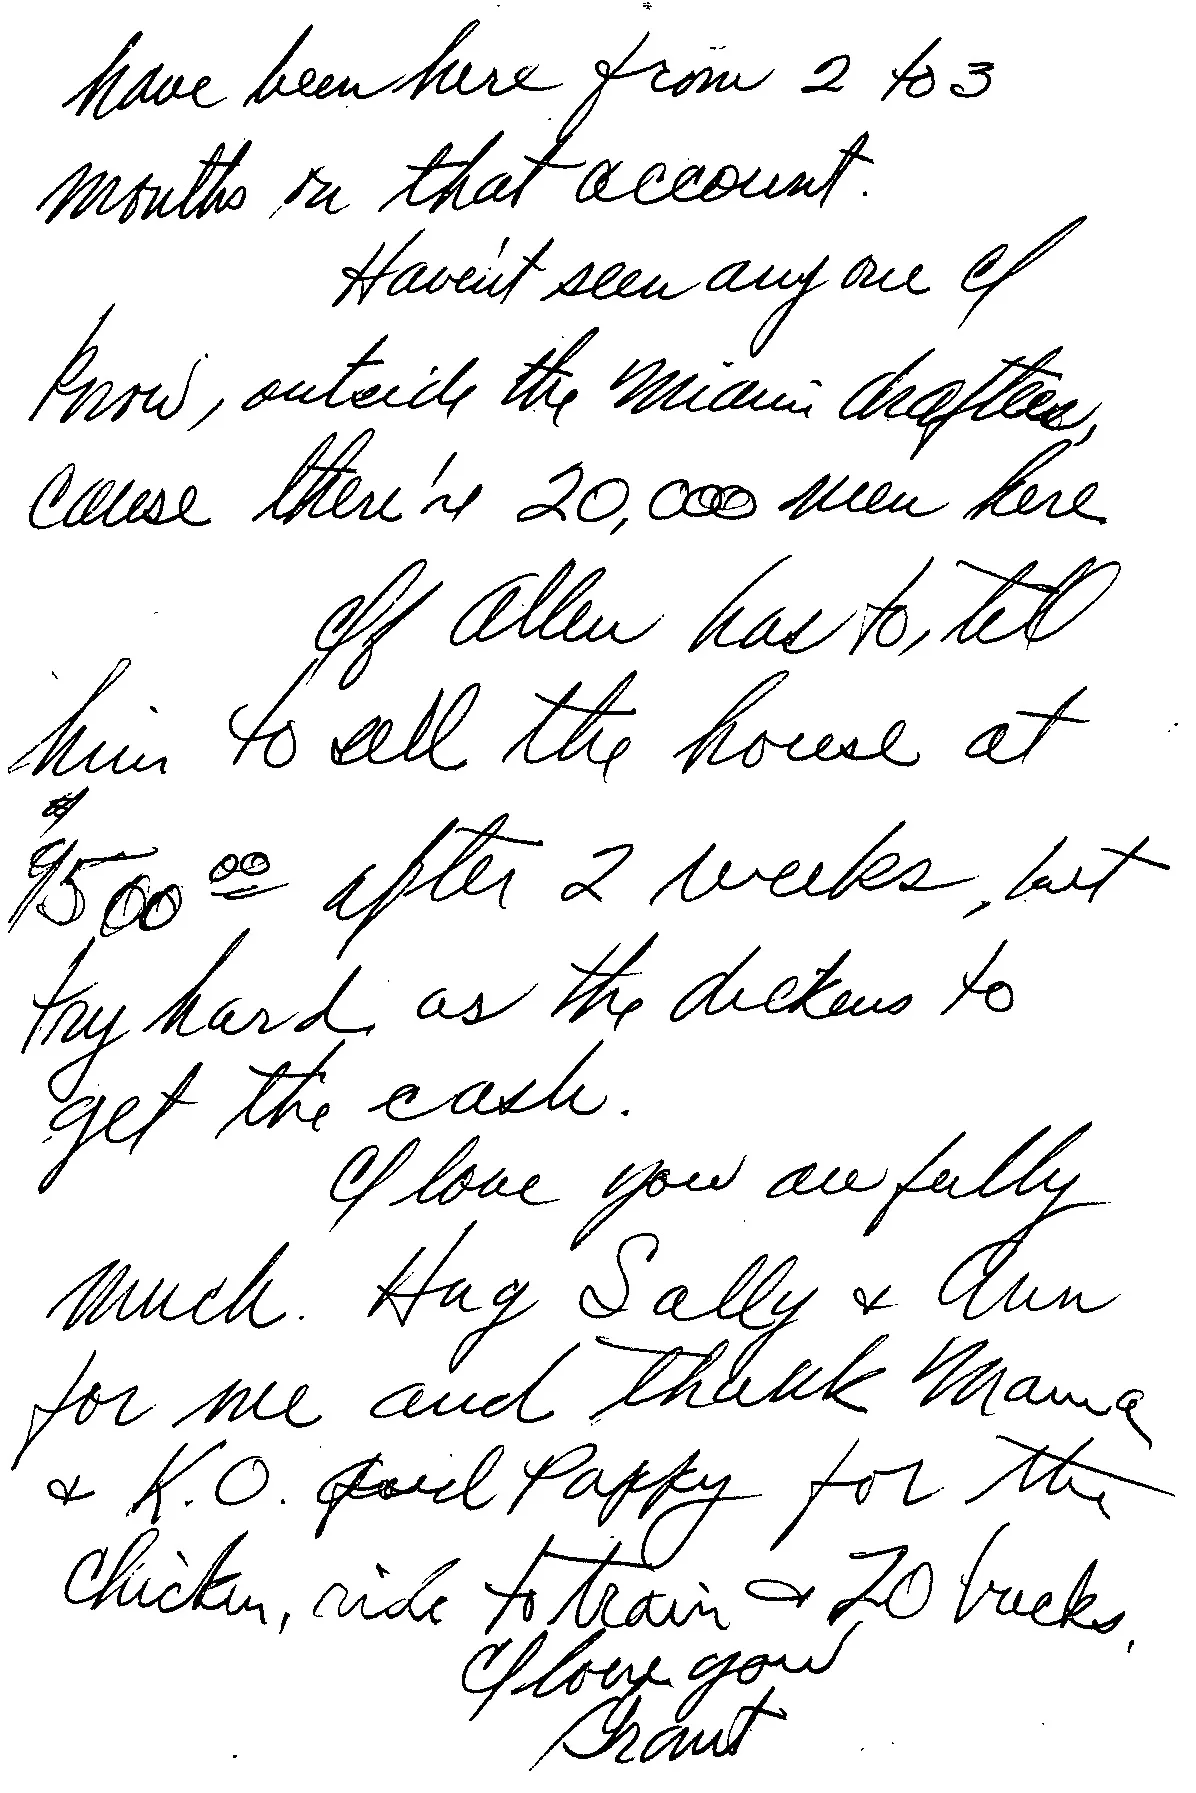 have been here from 2 to 3
months on that account.
Haven't seen any one I
know, outside the Miami draftees,
cause there're 20,000 men here
If Allen has to, tell
him to sell the house at
$
9500.00 after 2 weeks, but
try hard as the dickens to
get the cash.
I love you awfully
much. Hug Sally & Ann
for me and thank Mama
& K.O. and Pappy for the
chicken, ride to train & 20 bucks.
I love you
Grant